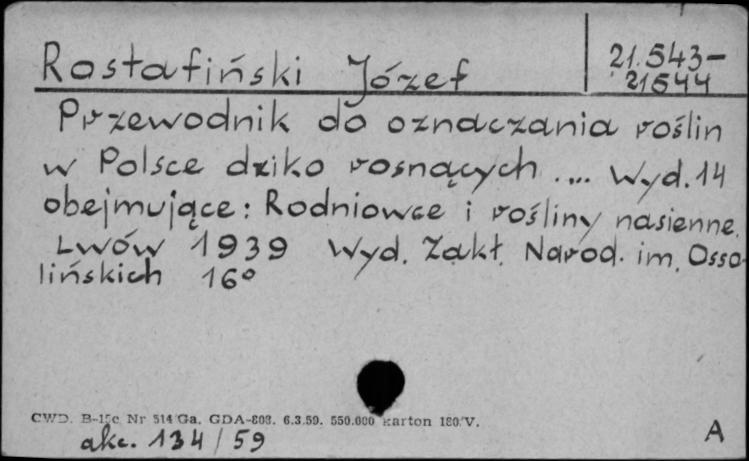 Rostafiński Józef
21.543-
21544
Przewodnik do oznaczania roślin
w Polsce dziko rosnących .... Wyd. 14
obejmujące: Rodniowce i rośliny nasienne.
Lwów 1939 Wyd. Zakł. Narod. im. Osso-
lińskich 16°
CWD. B-15c Nr 514 Ga. GDA-808. 6.3.59. 550.000 karton 180 V.
akc. 134/59
A